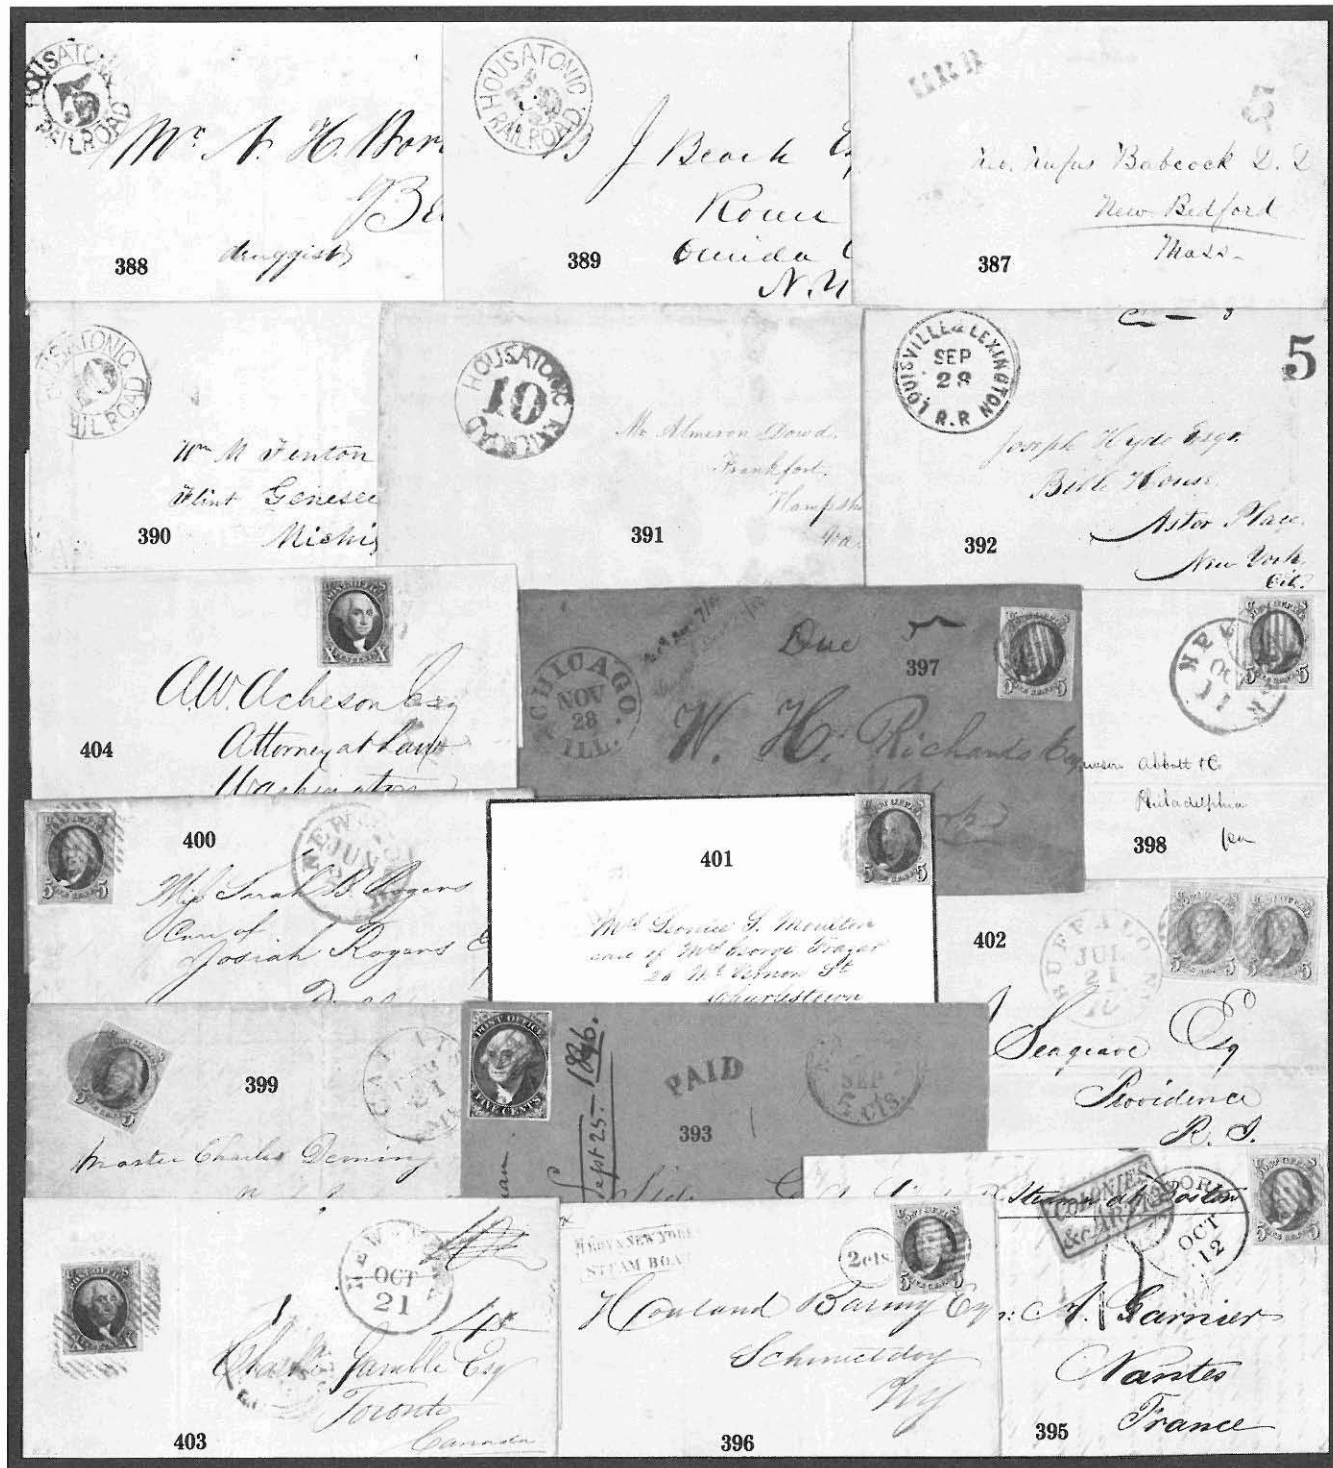 HOUSATONIC
RAILROAD
Mr. N. H. Bor
Be
druggist
388
HOUSATONIC
RAILROAD.
J Beach Es
Rome
Oneida C
N.Y
389
Rev. Rufus Babcock D. D
New Bedford
Mass-
387
HOUSATONIC
RAILROAD
Wm M Fenton
Flint Genesee
Michig
390
HOUSATONIC RAILROAD
10
Mr Almeron Dowd.
Frankfort,
Hampsh
391
LOUISVILLE & LEXINGTON R.R
SEP
28
5
Joseph Hyde Esqr.
Bible House.
Astor Place.
New York
City
392
POST OFFICE
X X
A.W. Acheson Esq
Attorney at Law
Washington
404
CHICAGO.
NOV
28
ILL.
Due 5
397
5 5
W. H. Richards Esq
5 5
Abbott & Co
Philadelphia
398
400
5 5
NEW
JUN
Miss Sarah B. Rogers
Care of
Josiah Rogers
401
5 5
Mrs
care of Mrs George Frazar
20 Mt Vernon St
Charlestown
402
BUFFALO
JUL
21
5 5 5
Seagrave Esq
Providence
R. I.
399
21
Master Charles Deming
POST OFFICE
FIVE CENTS
Sept 25.- 1846.
PAID
SEP
5 CTS.
393
NEW
OCT
21
10
4
Chas Gamble Esq
Toronto
Canada
403
TROY & NEW YORK
STEAM BOAT
2cts.
5 5
Howland Esq:
Schenectady
NY
396
Steamer at Boston
COLONIES
&c ART
YORK
OCT
12
A. Garnier
Nantes
France
395